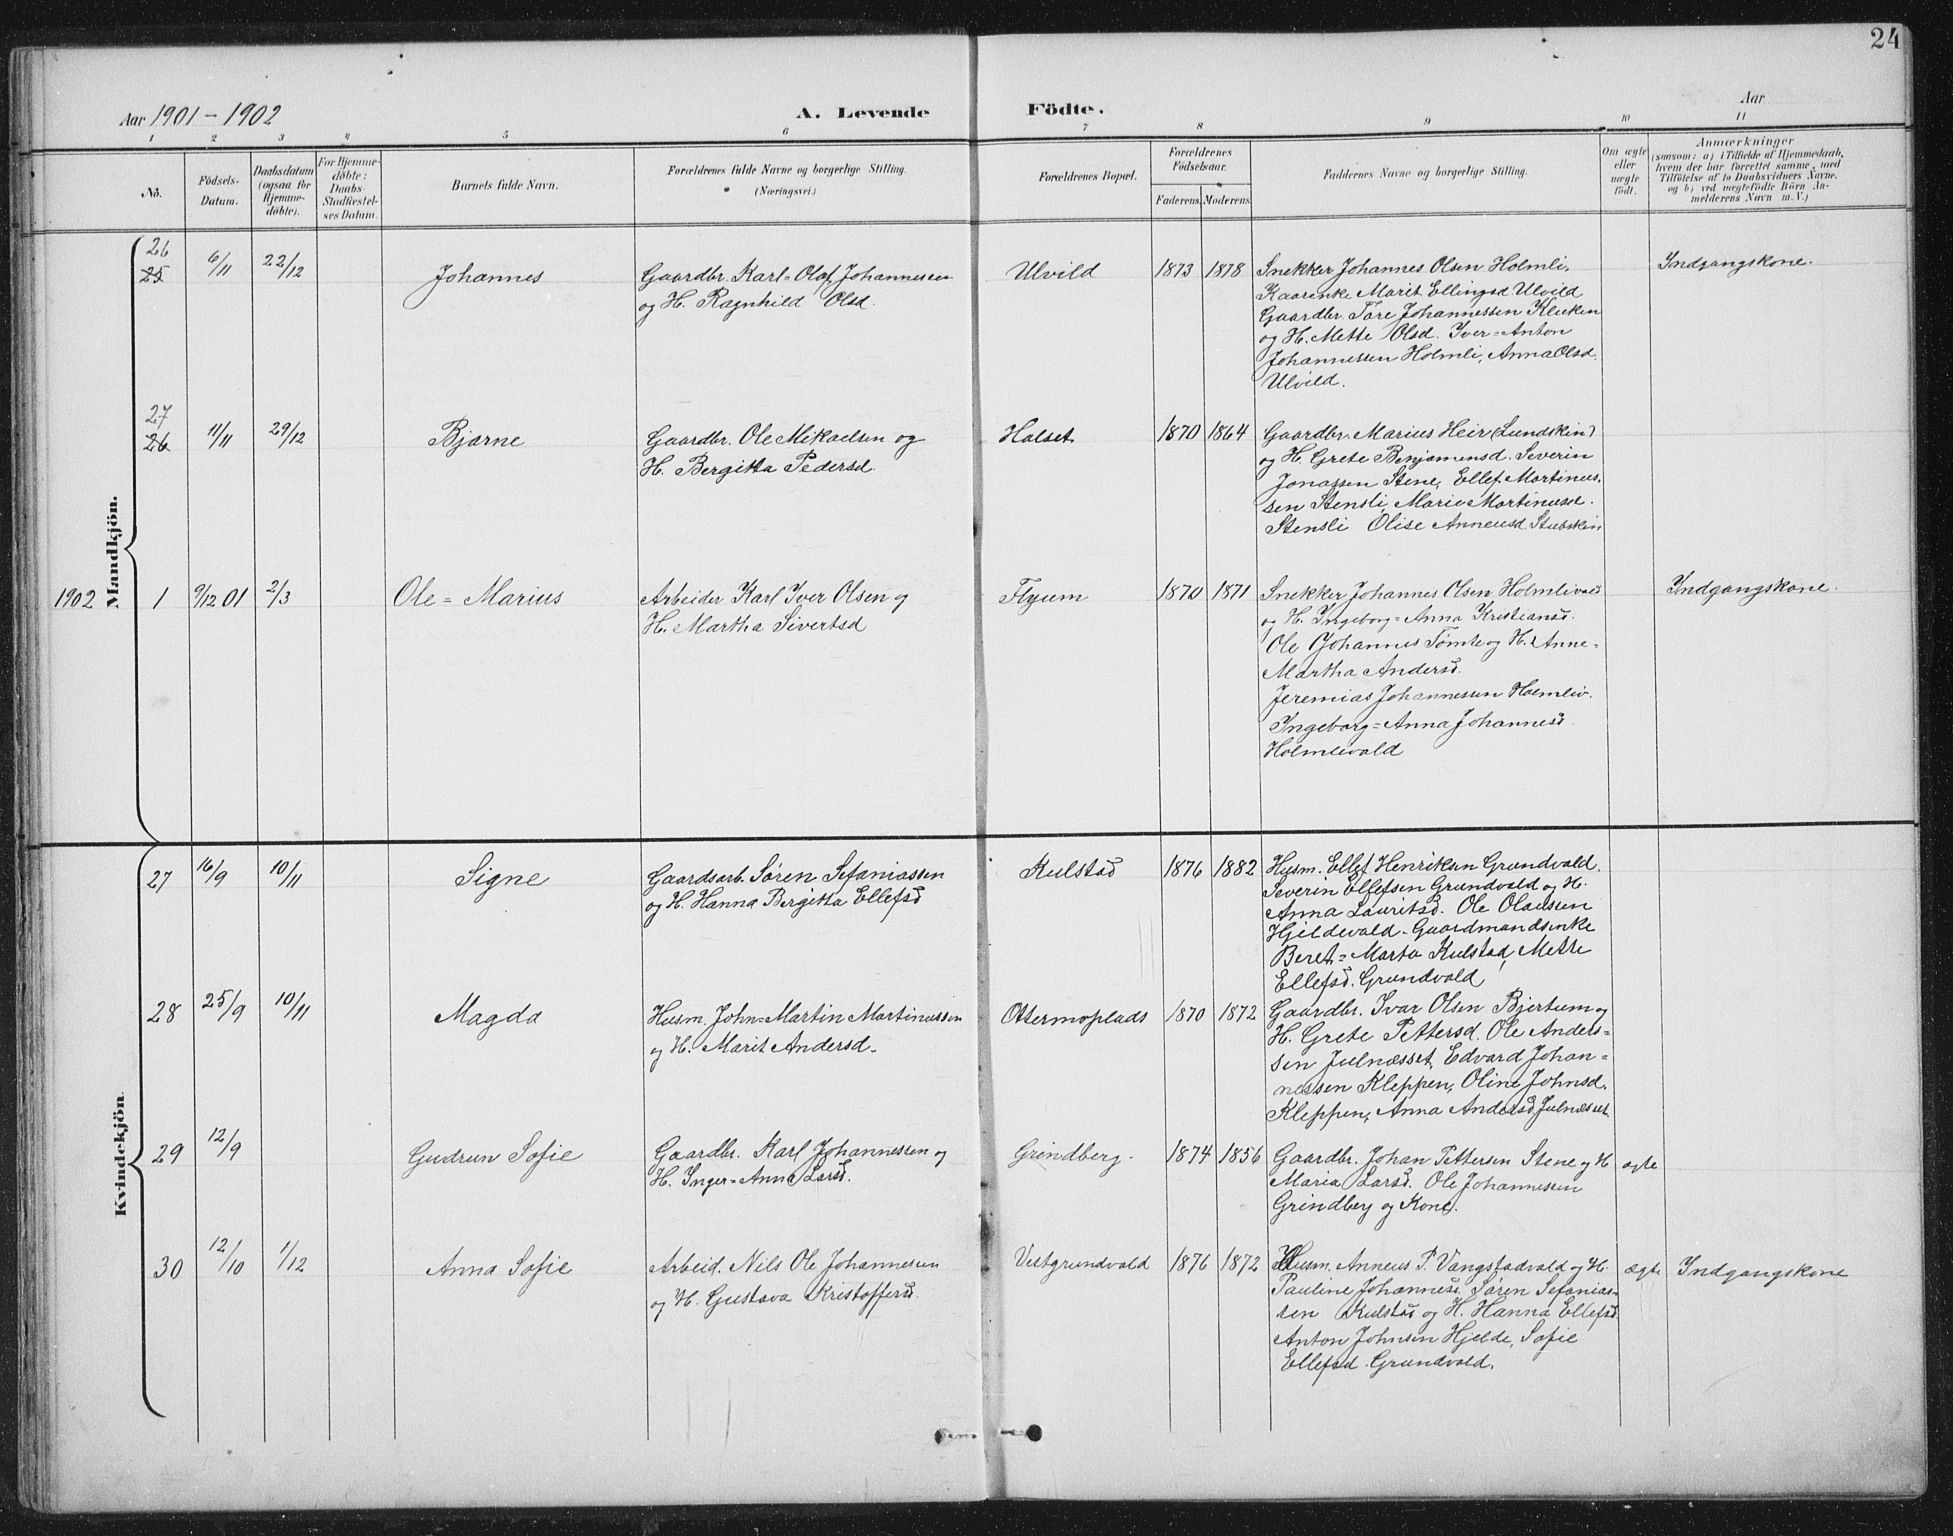 24
Aar 1901 - 1902
A. Levende
Födte.
Aar
1 2 3 4 5 6 7 8 9 10 11
No.
Födsels-
Datum.
Daabsdatum
(ogsaa för
Hjemme-
döbte).
For Hjemme-
döbte:
Daabs-
Stadfæstel-
ses Datum.
Barnets fulde Navn.
Forældrenes fulde Navne og borgerlige Stilling.
(Næringsvei.)
Forældrenes Bopæl.
Forældrenes
Födselsaar.
Faderens. Moderens.
Faddernes Navne og borgerlige Stilling.
Om ægte
eller
uægte
födt.
Anmærkninger
(saasom: a) i Tilfælde af Hjemmedaab,
hvem der har forrettet samme, med
Tilföielse af to Daabsvidners Navne.
og b) ved uægtefödte Börn An-
melderens Navn m. V.)
Mandkjön.
26
25
6/11
22/12
Johannes
Gaardbr. Karl-Olaf Johannessen
og H. Ragnhild Olsd.
Ulvild
1873 1878
Snekker Johannes Olsen Holmli,
Kaarenke Marit Ellingsd Ulvild
Gaardbr Tore Johannessen Klukken
og H. Mette Olsd. Iver-Anton
Johannessen Holmli, Anna Olsd.
Ulvild.
Indgangskone.
27
26
11/11
29/12
Bjarne
Gaardbr. Ole Mikaelsen og
H. Bergitta Pedersd.
Halset
1870 1864
Gaardbr. Marius Heir (Lundskin)
og H. Grete Benjamensd. Severin
Jonassen Stene, Ellef Martinus-
sen Stensli, Marie Martinusd.
Stensli Olise Anneusd Stubskin
1902
1
9/12 01
2/3
Ole = Marius
Arbeider Karl Iver Olsen og
H. Martha Sivertsd
Flyum
1870 1871
Snekker Johannes Olsen Holmlivald
og H. Ingeborg=Anna Kristiansd.
Ole Johannes Tømte og H. Anne-
Martha Andersd.
Jeremias Johannessen Holmliv.
Ingeborg=Anna Johannesd.
Holmlivald
Indgangskone.
Kvindekjön.
27
16/9
10/11
Signe
Gaardsarb. Søren Sefaniassen
og H. Hanna Bergitta Ellefsd
Kulstad
1876 1882
Husm. Ellef Henriksen Grundvald.
Severin Ellefsen Grundvald og H.
Anna Lauritsd. Ole Olausen
Hjildevald. Gaardmandsenke
Beret=Marta Kulstad, Mette
Ellefsd. Grundvald
28
25/9
10/11
Magda
Husm. John=Martin Martinussen
og H. Marit Andersd.
Ottermoplads
1870 1872
Gaardbr. Ivar Olsen Bjertum og
H. Grete Pettersd. Ole Anders-
sen Julnæsset, Edvard Johan-
nessen Kleppen, Oline Johnsd.
Kleppen, Anna Andersd Julnæsset
29
12/9
Gudrun Sofie
Gaardbr. Karl Johannessen og
H. Inger=Anna Larsd.
Grindberg.
1874 1856
Gaardbr. Johan Pettersen Stene og H
Maria Larsd. Ole Johannessen
Grindberg og Kone.
ægte
30
12/10
1/12
Anna Sofie
Arbeid. Nils Ole Johannesen
og H. Gustava Kristoffersd.
Vestgrundvald
1876 1872
Husm. Anneus P. Vangstadvald og H.
Pauline Johannesd. Søren Sefanias-
sen Kulstad og H. Hanna Ellefsd.
Anton Johnsen Hjelde, Sofie
Ellefsd Grundvald.
ægte
Indgangskone